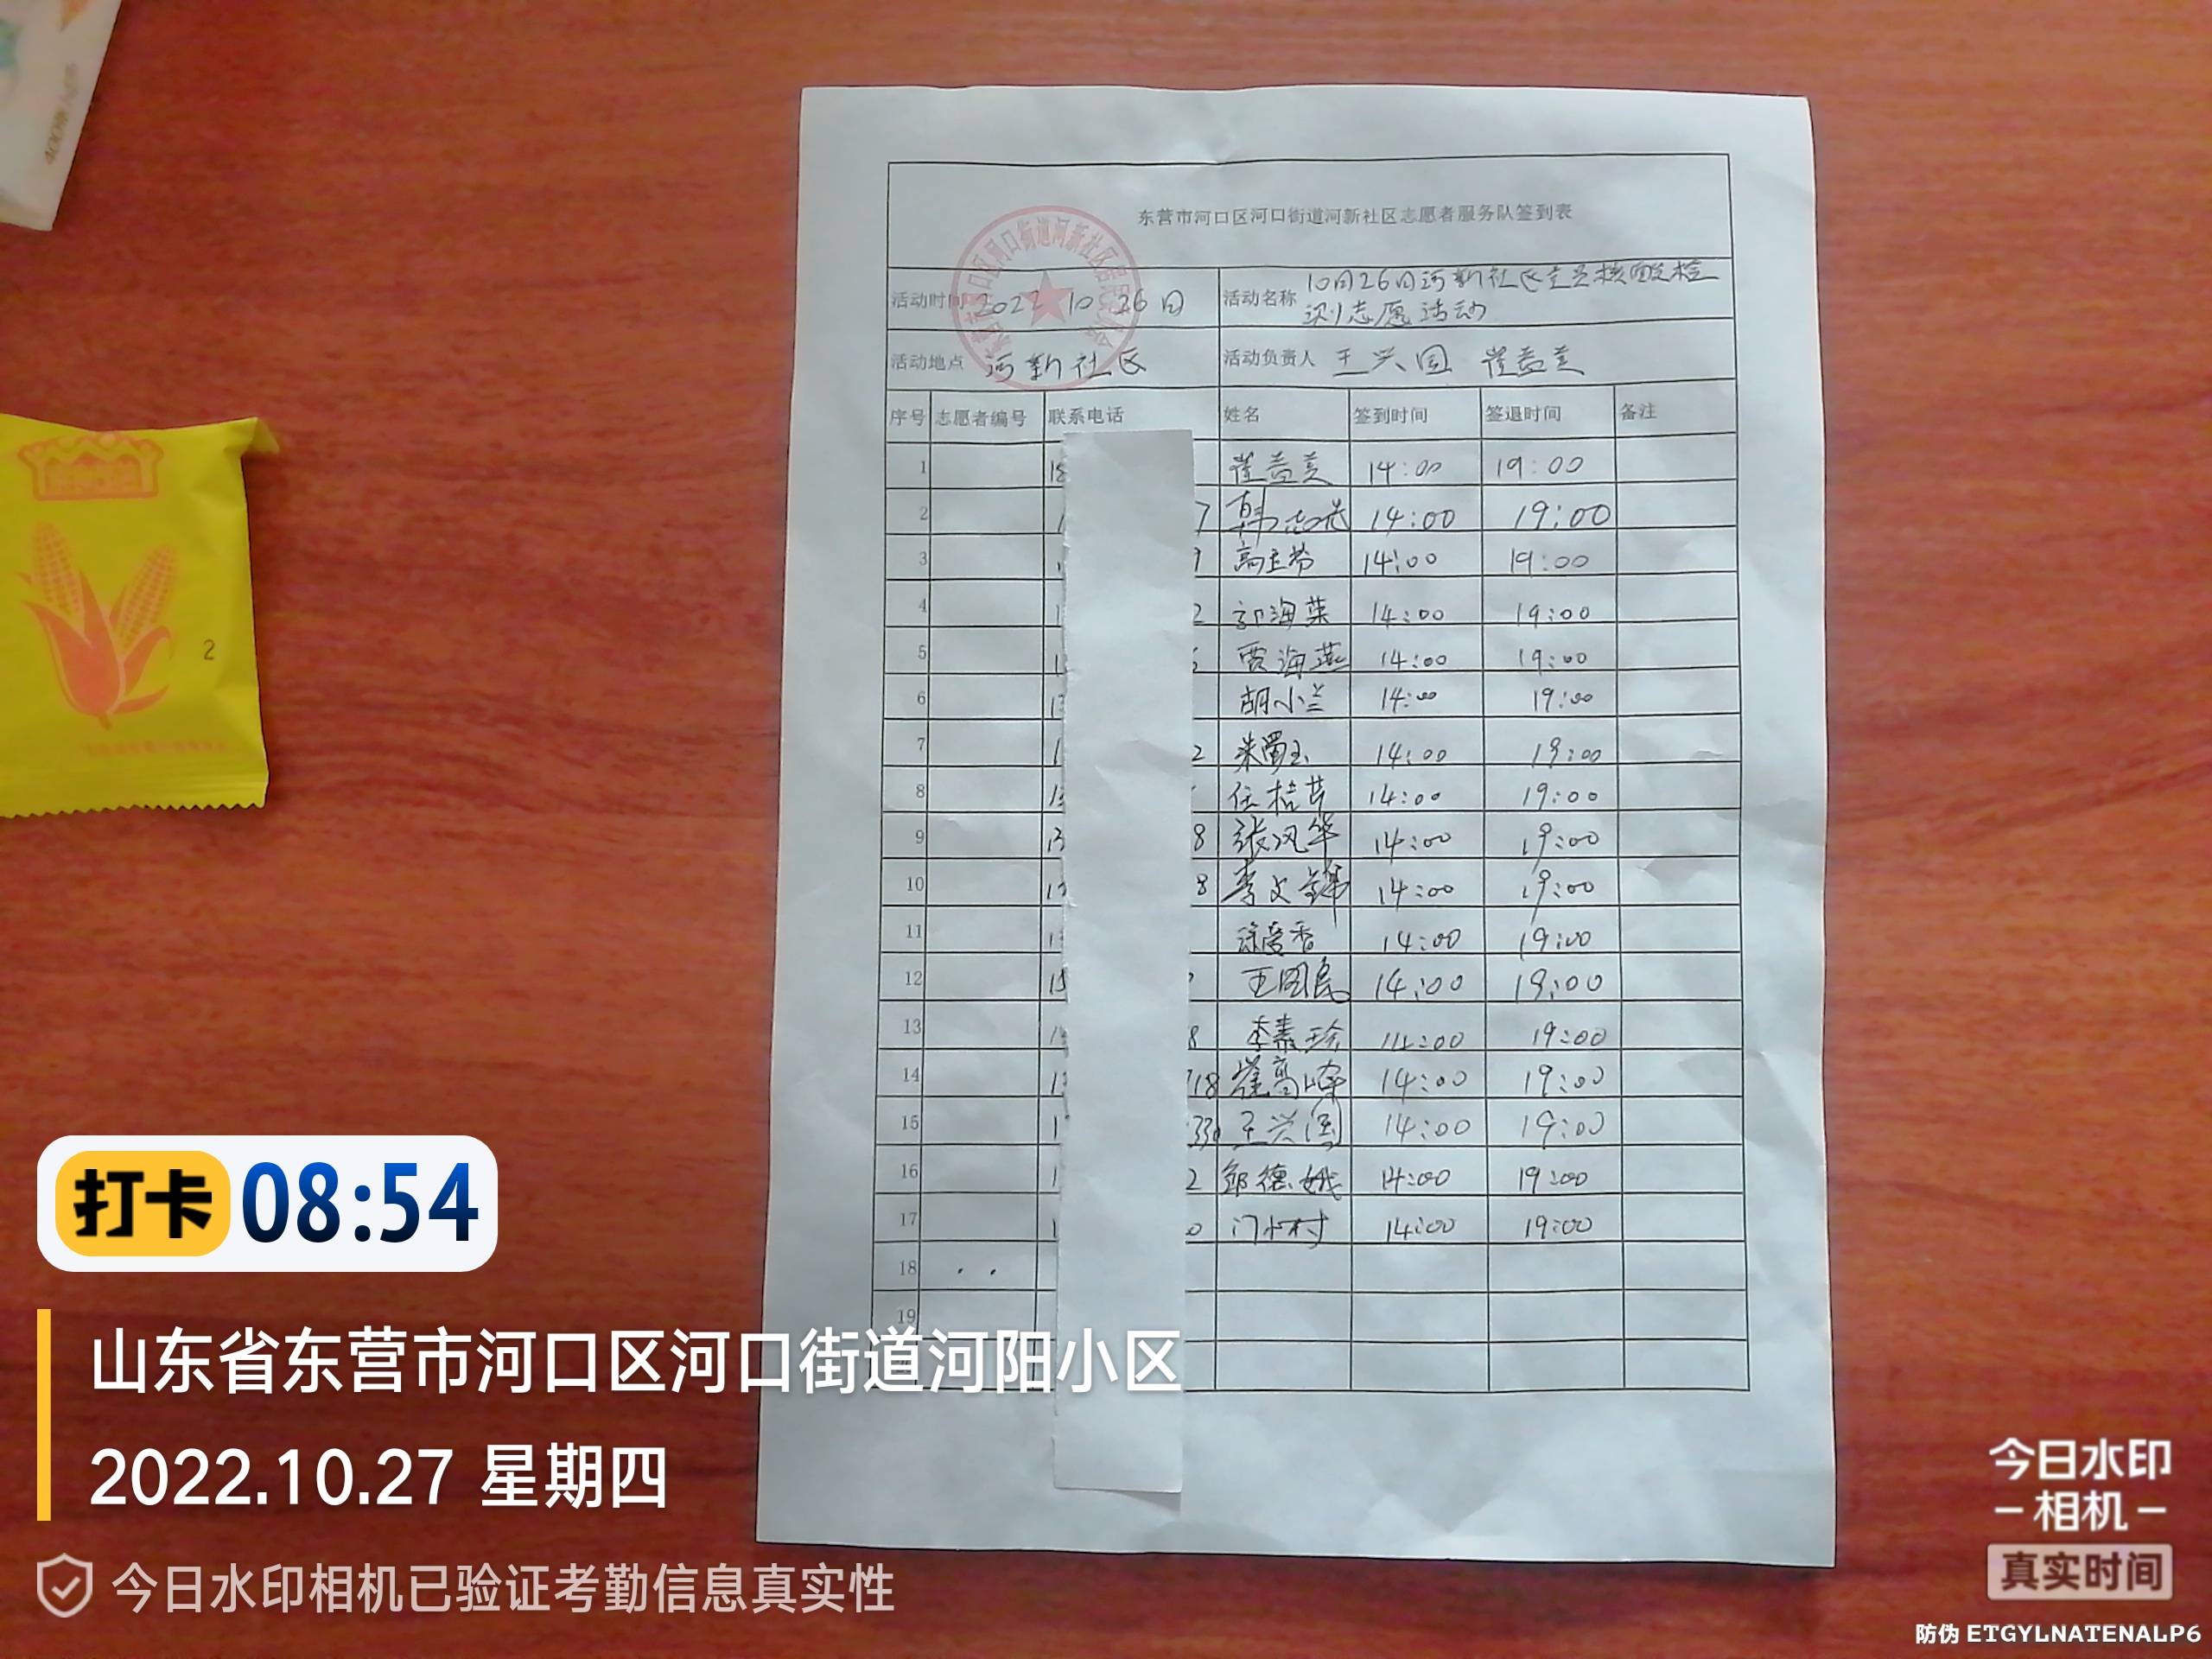 东营市河口区河口街道河新社区志愿者服务队签到表
活动时间 2022 10 26日 活动名称 10月26日河新社区全员核酸检测志愿活动
活动地点 河新社区 活动负责人 王兴国 崔益美
序号 志愿者编号 联系电话 姓名 签到时间 签退时间 备注
1 18 崔益美 14:00 19:00
2 1 7 韩志 14:00 19:00
3 9 高玉芬 14:00 19:00
4 1 2 郭海荣 14:00 19:00
5 1 贾海燕 14:00 19:00
6 13 胡小兰 14:00 19:00
7 1 2 朱蜀玉 14:00 19:00
8 1 任桂芹 14:00 19:00
9 13 8 张风华 14:00 19:00
10 13 8 李文锦 14:00 19:00
11 1 香 14:00 19:00
12 15 王国民 14:00 19:00
13 1 8 李素珍 14:00 19:00
14 1 18 崔高峰 14:00 19:00
15 1 33 王兴国 14:00 19:00
16 1 2 邹德娥 14:00 19:00
17 1 0 门小村 14:00 19:00
18
19
2
打卡 08:54
山东省东营市河口区河口街道河阳小区
2022.10.27 星期四
今日水印相机已验证考勤信息真实性
今日水印
相机
真实时间
防伪 ETGYLNATENALP6